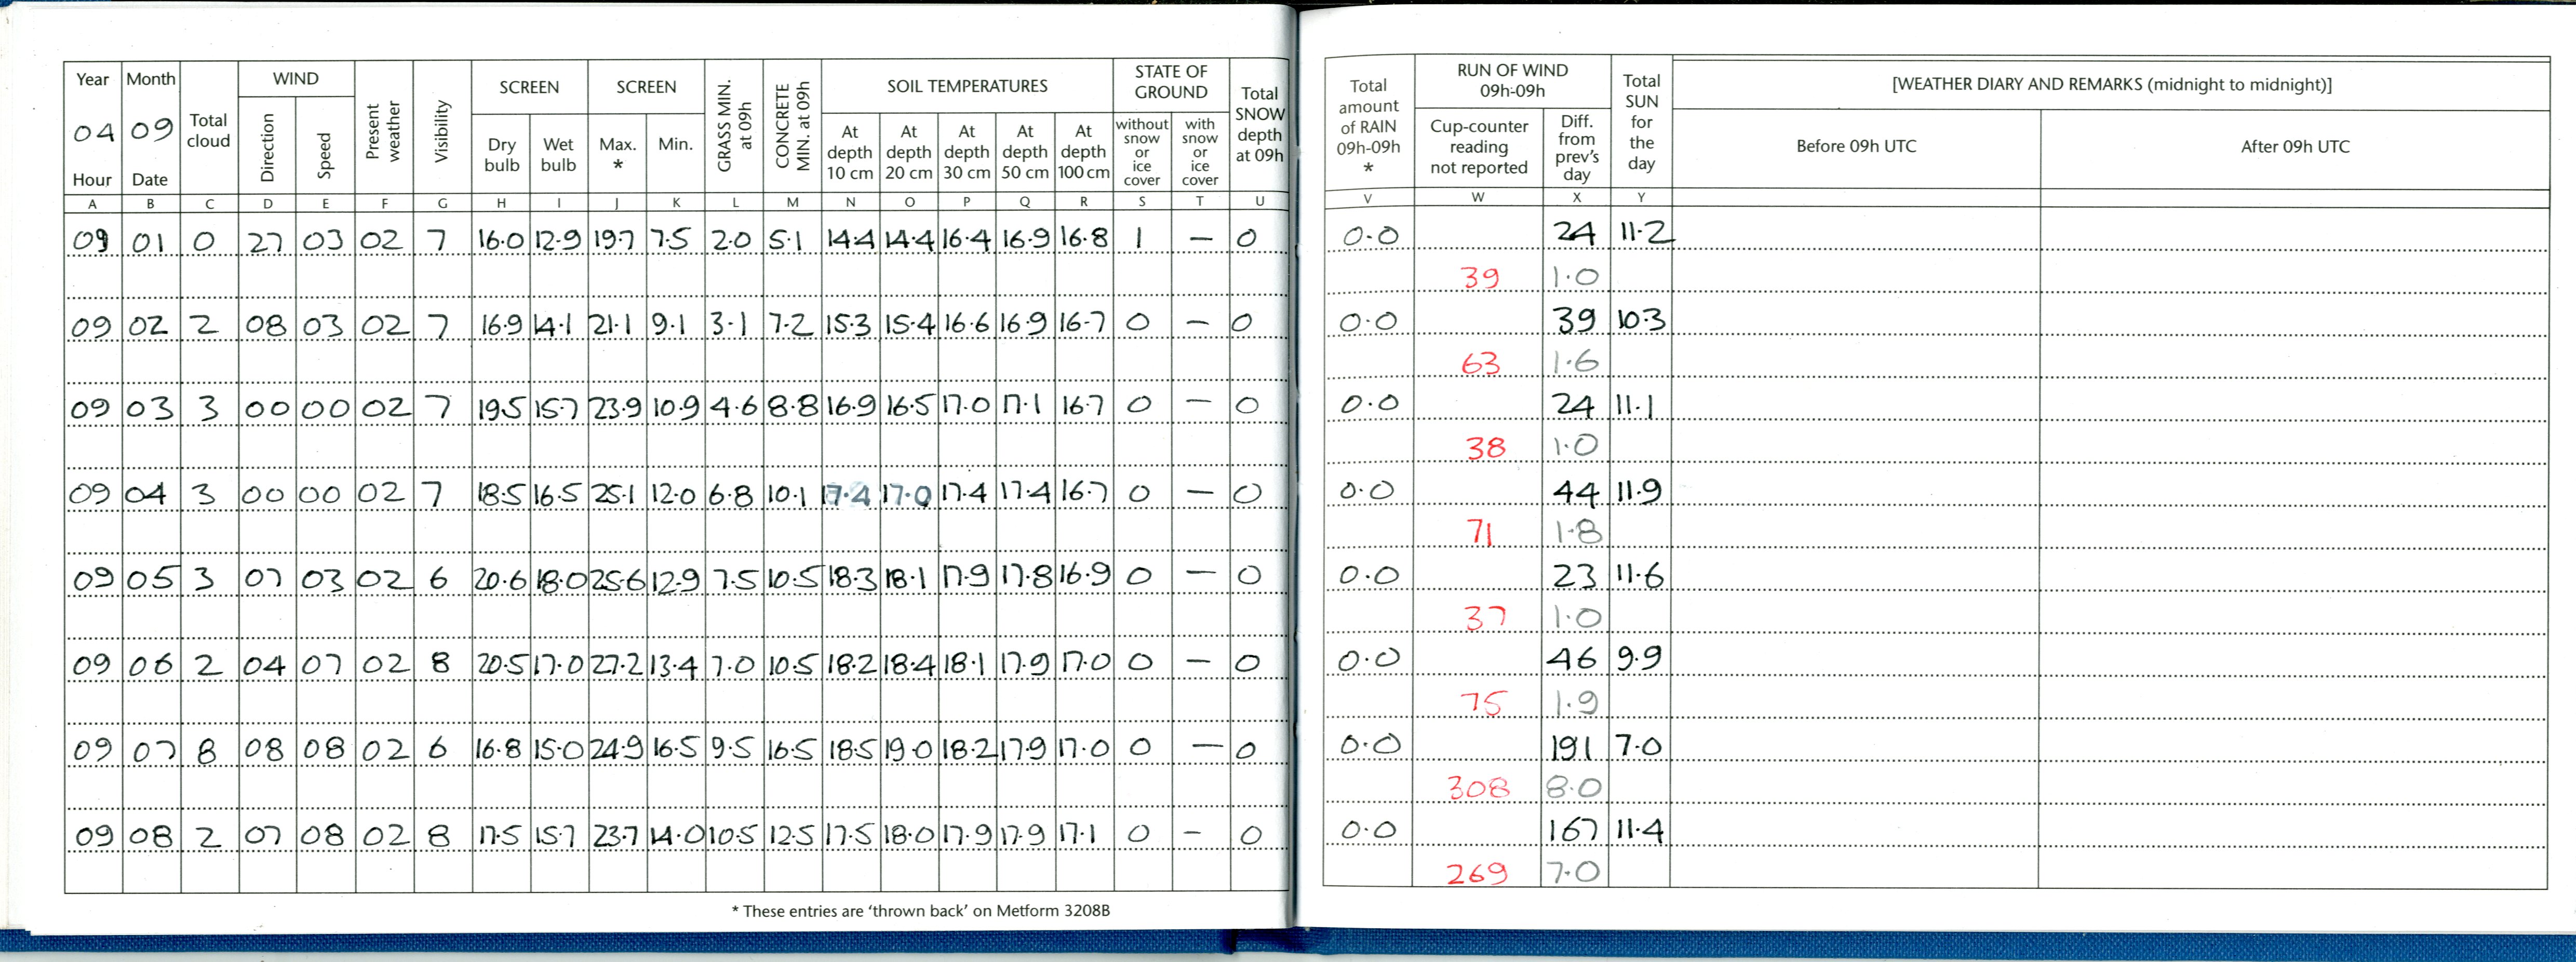 Year Month Total cloud WIND Present weather Visibility SCREEN SCREEN GRASS MIN. at 09h CONCRETE MIN. at 09h SOIL TEMPERATURES STATE OF GROUND Total SNOW depth at 09h
04 09 Direction Speed Dry bulb Wet bulb Max. * Min. At depth 10 cm At depth 20 cm At depth 30 cm At depth 50 cm At depth 100 cm without snow or ice cover with snow or ice cover
Hour Date
A B C D E F G H I J K L M N O P Q R S T U
09 01 0 27 03 02 7 16.0 12.9 19.7 7.5 2.0 5.1 14.4 14.4 16.4 16.9 16.8 1 — 0
09 02 2 08 03 02 7 16.9 14.1 21.1 9.1 3.1 7.2 15.3 15.4 16.6 16.9 16.7 0 — 0
09 03 3 00 00 02 7 19.5 15.7 23.9 10.9 4.6 8.8 16.9 16.5 17.0 17.1 16.7 0 — 0
09 04 3 00 00 02 7 18.5 16.5 25.1 12.0 6.8 10.1 17.4 17.0 17.4 17.4 16.7 0 — 0
09 05 3 07 03 02 6 20.6 18.0 25.6 12.9 7.5 10.5 18.3 18.1 17.9 17.8 16.9 0 — 0
09 06 2 04 07 02 8 20.5 17.0 27.2 13.4 7.0 10.5 18.2 18.4 18.1 17.9 17.0 0 — 0
09 07 8 08 08 02 6 16.8 15.0 24.9 16.5 9.5 16.5 18.5 19.0 18.2 17.9 17.0 0 — 0
09 08 2 07 08 02 8 17.5 15.7 23.7 14.0 10.5 12.5 17.5 18.0 17.9 17.9 17.1 0 — 0
* These entries are 'thrown back' on Metform 3208B
Total amount of RAIN 09h-09h * RUN OF WIND 09h-09h Total SUN for the day [WEATHER DIARY AND REMARKS (midnight to midnight)]
Cup-counter reading not reported Diff. from prev's day Before 09h UTC After 09h UTC
V W X Y
0.0 24 11.2
39 1.0
0.0 39 10.3
63 1.6
0.0 24 11.1
38 1.0
0.0 44 11.9
71 1.8
0.0 23 11.6
37 1.0
0.0 46 9.9
75 1.9
0.0 191 7.0
308 8.0
0.0 167 11.4
269 7.0